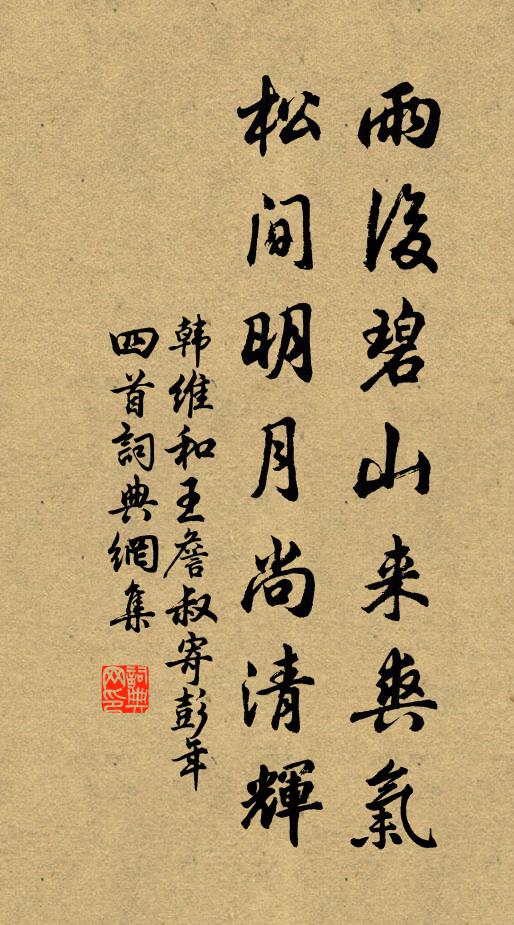 雨後碧山来爽氣
松间明月尚清輝
韩維和王詹叔寄彭年
四首詞典網集
詞典网印